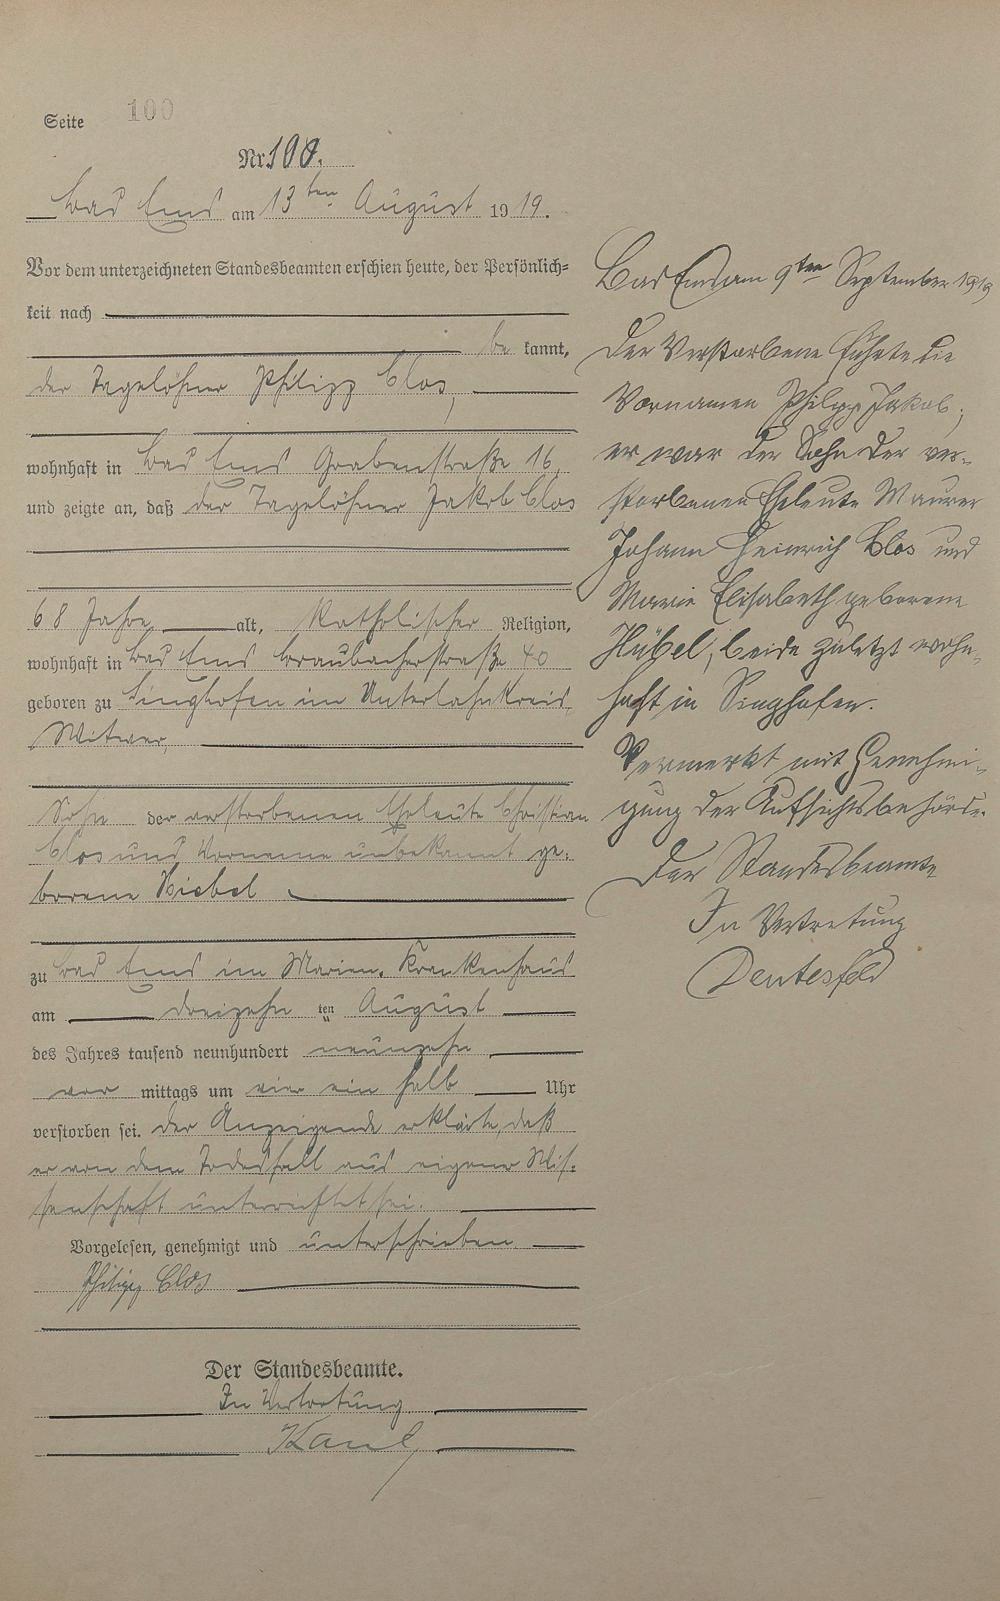 Seite 100
Nr. 100.
Bad Ems am 13ten August 1919.
Vor dem unterzeichneten Standesbeamten erschien heute, der Persönlich-
keit nach
be kannt,
der Tagelöhner Philipp Clos,
wohnhaft in Bad Ems Grabenstraße 16,
und zeigte an, daß der Tagelöhner Jakob Clos
68 Jahre alt, katholischer Religion,
wohnhaft in Bad Ems Braubacherstraße 40
geboren zu Singhofen im Unterlahnkreis,
Witwer,
Sohn der verstorbenen Eheleute Christian
Clos und Vorname unbekannt ge-
borene Hiebel
zu Bad Ems im Marien-Krankenhaus
am dreizehn ten August
des Jahres tausend neunhundert neunzehn
vor mittags um vier ein halb Uhr
verstorben sei. Der Anzeigende erklärte, daß
er von dem Todesfall aus eigener Wis-
senschaft unterrichtet sei.
Vorgelesen, genehmigt und unterschrieben
Philipp Clos
Der Standesbeamte.
In Vertretung
Kaul
Bad Ems am 9ten September 1919
Der Verstorbene führte die
Vornamen Philipp Jakob;
er war der Sohn der ver-
storbenen Eheleute Maurer
Johann Heinrich Clos und
Marie Elisabeth geborene
Hübel, beide zuletzt wohn-
haft in Singhofen.
Vermerkt mit Genehmi-
gung der Aufsichtsbehörde.
Der Standesbeamte
In Vertretung